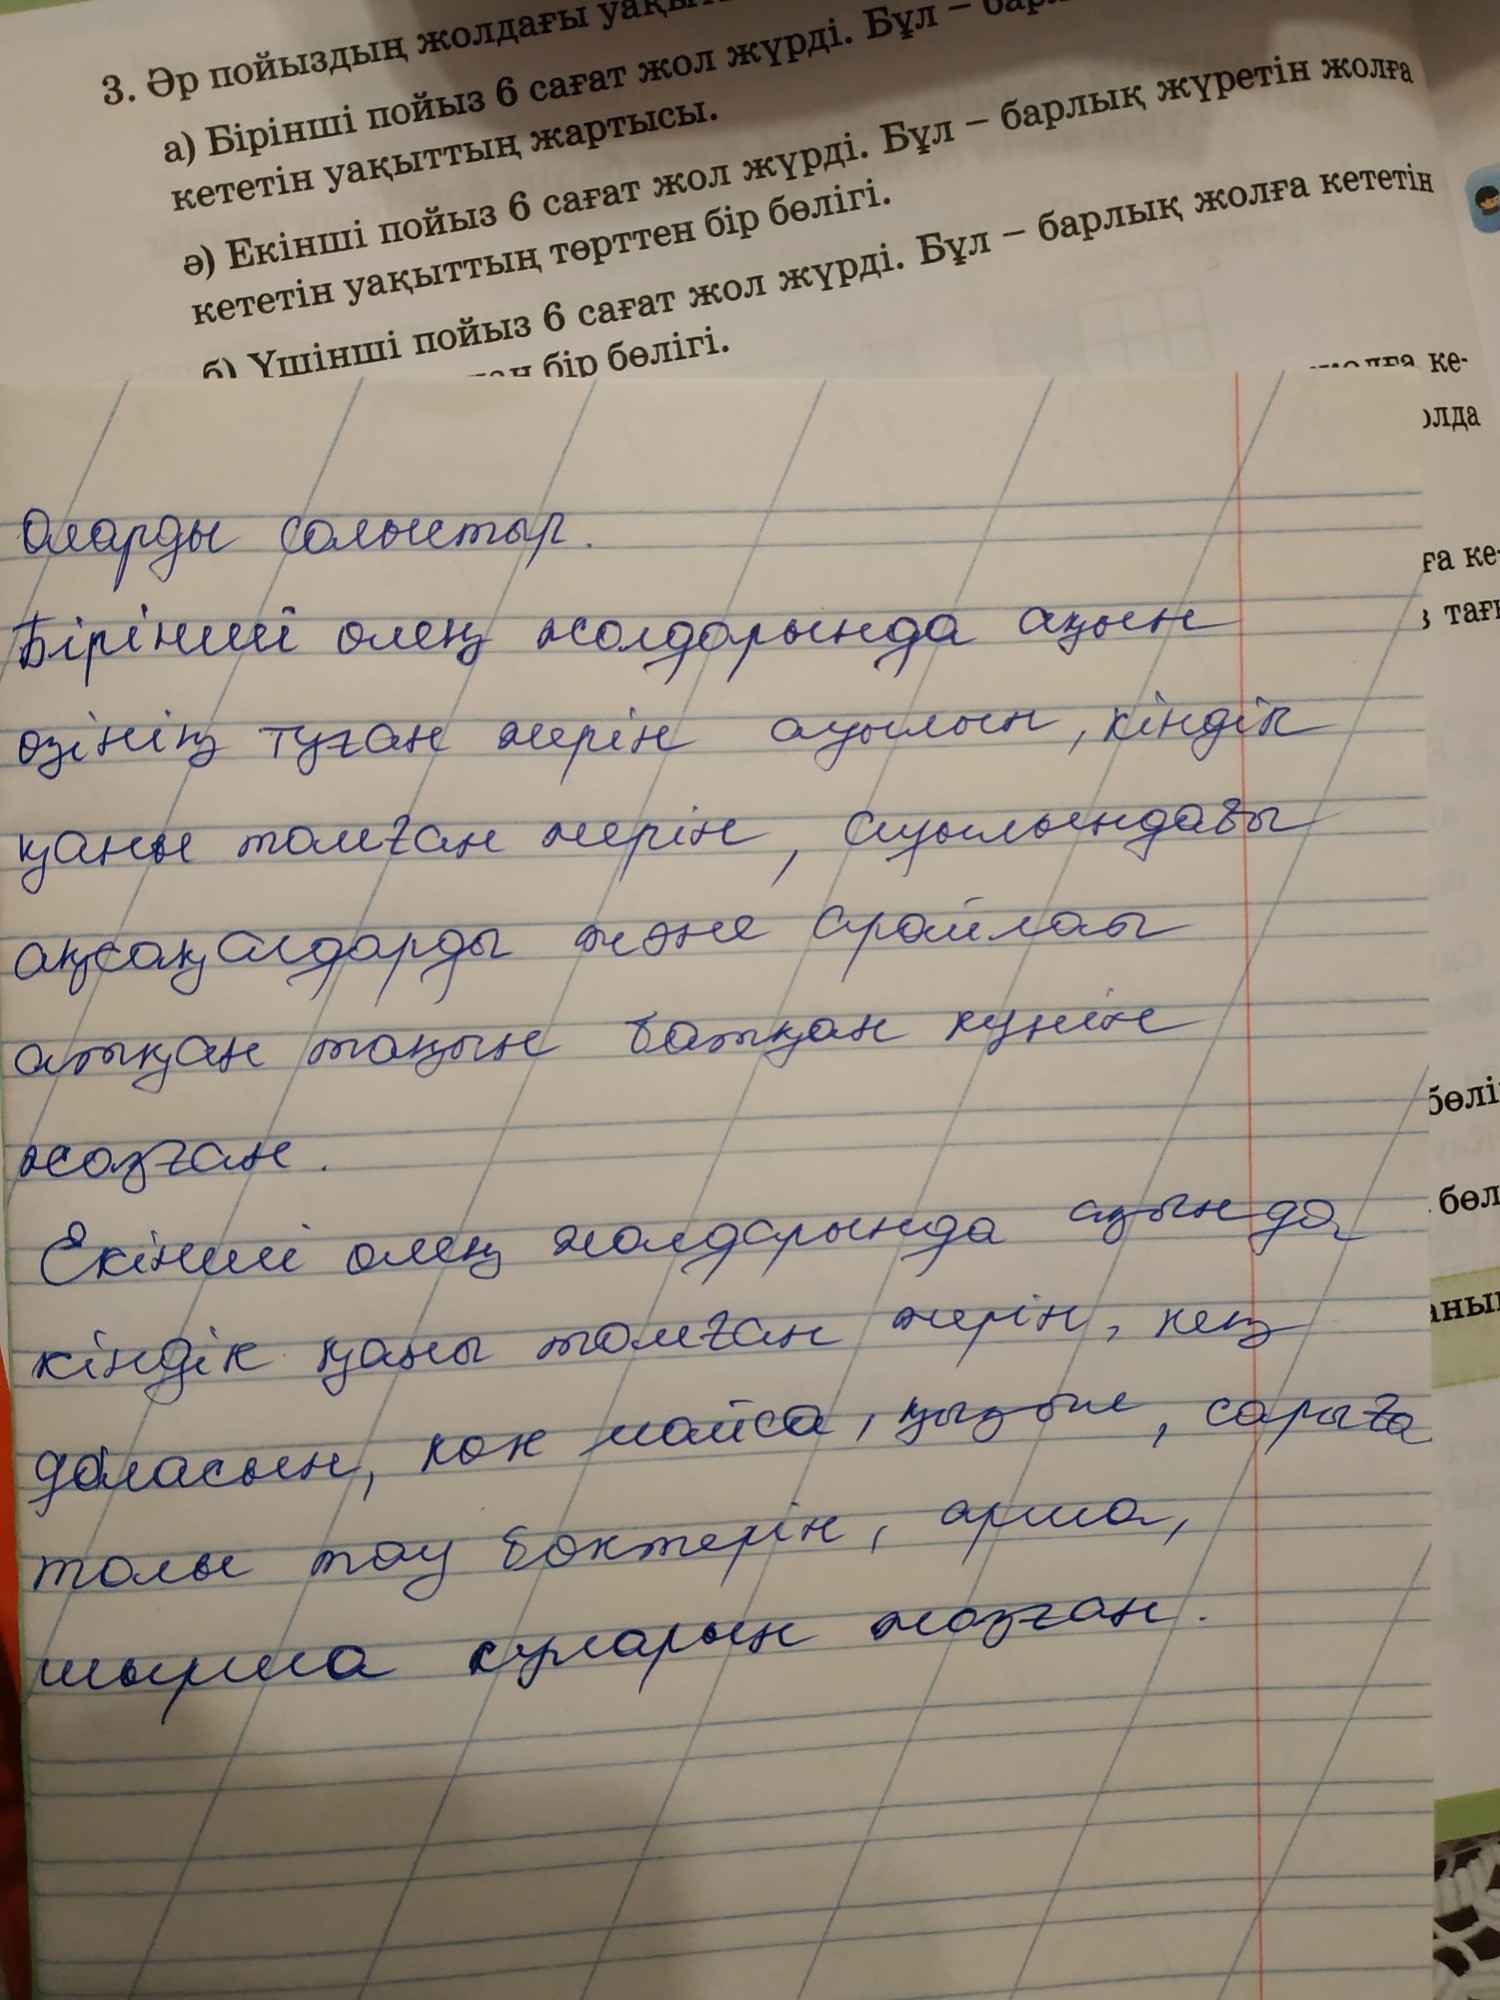 3. Әр пойыздың жолдағы
а) Бірінші пойыз 6 сағат жол жүрді. Бұл –
кететін уақыттың жартысы.
ә) Екінші пойыз 6 сағат жол жүрді. Бұл – барлық жүретін жолға
кететін уақыттың төрттен бір бөлігі.
б) Үшінші пойыз 6 сағат жол жүрді. Бұл – барлық жолға кететін
бір бөлігі.
ке-
ға ке-
Оларды салыстыр.
Бірінші өлең жолдарында ақын
өзінің туған жерін ауылын, кіндік
қаны тамған жерін, ауылындағы
ақсақалдарды және арайлаы
атқан таңын батқан күнін
жазған.
Екінші өлең жолдарында ақында
кіндік қаны тамған жерін, кең
даласын, көк майса, қызыл, сарыға
толы тау бөктерін, арша,
шырша суларын жазған.